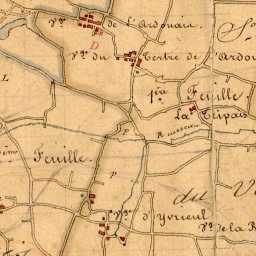 Vge. de L'Ardouair
D
Vge. du Tertre de l'Ardou
1ère Feuille
La Tripais
Ruisseau
L
P
ème Feuille.
P
du V
Vge. d'Yvrieul
Vge. de la R